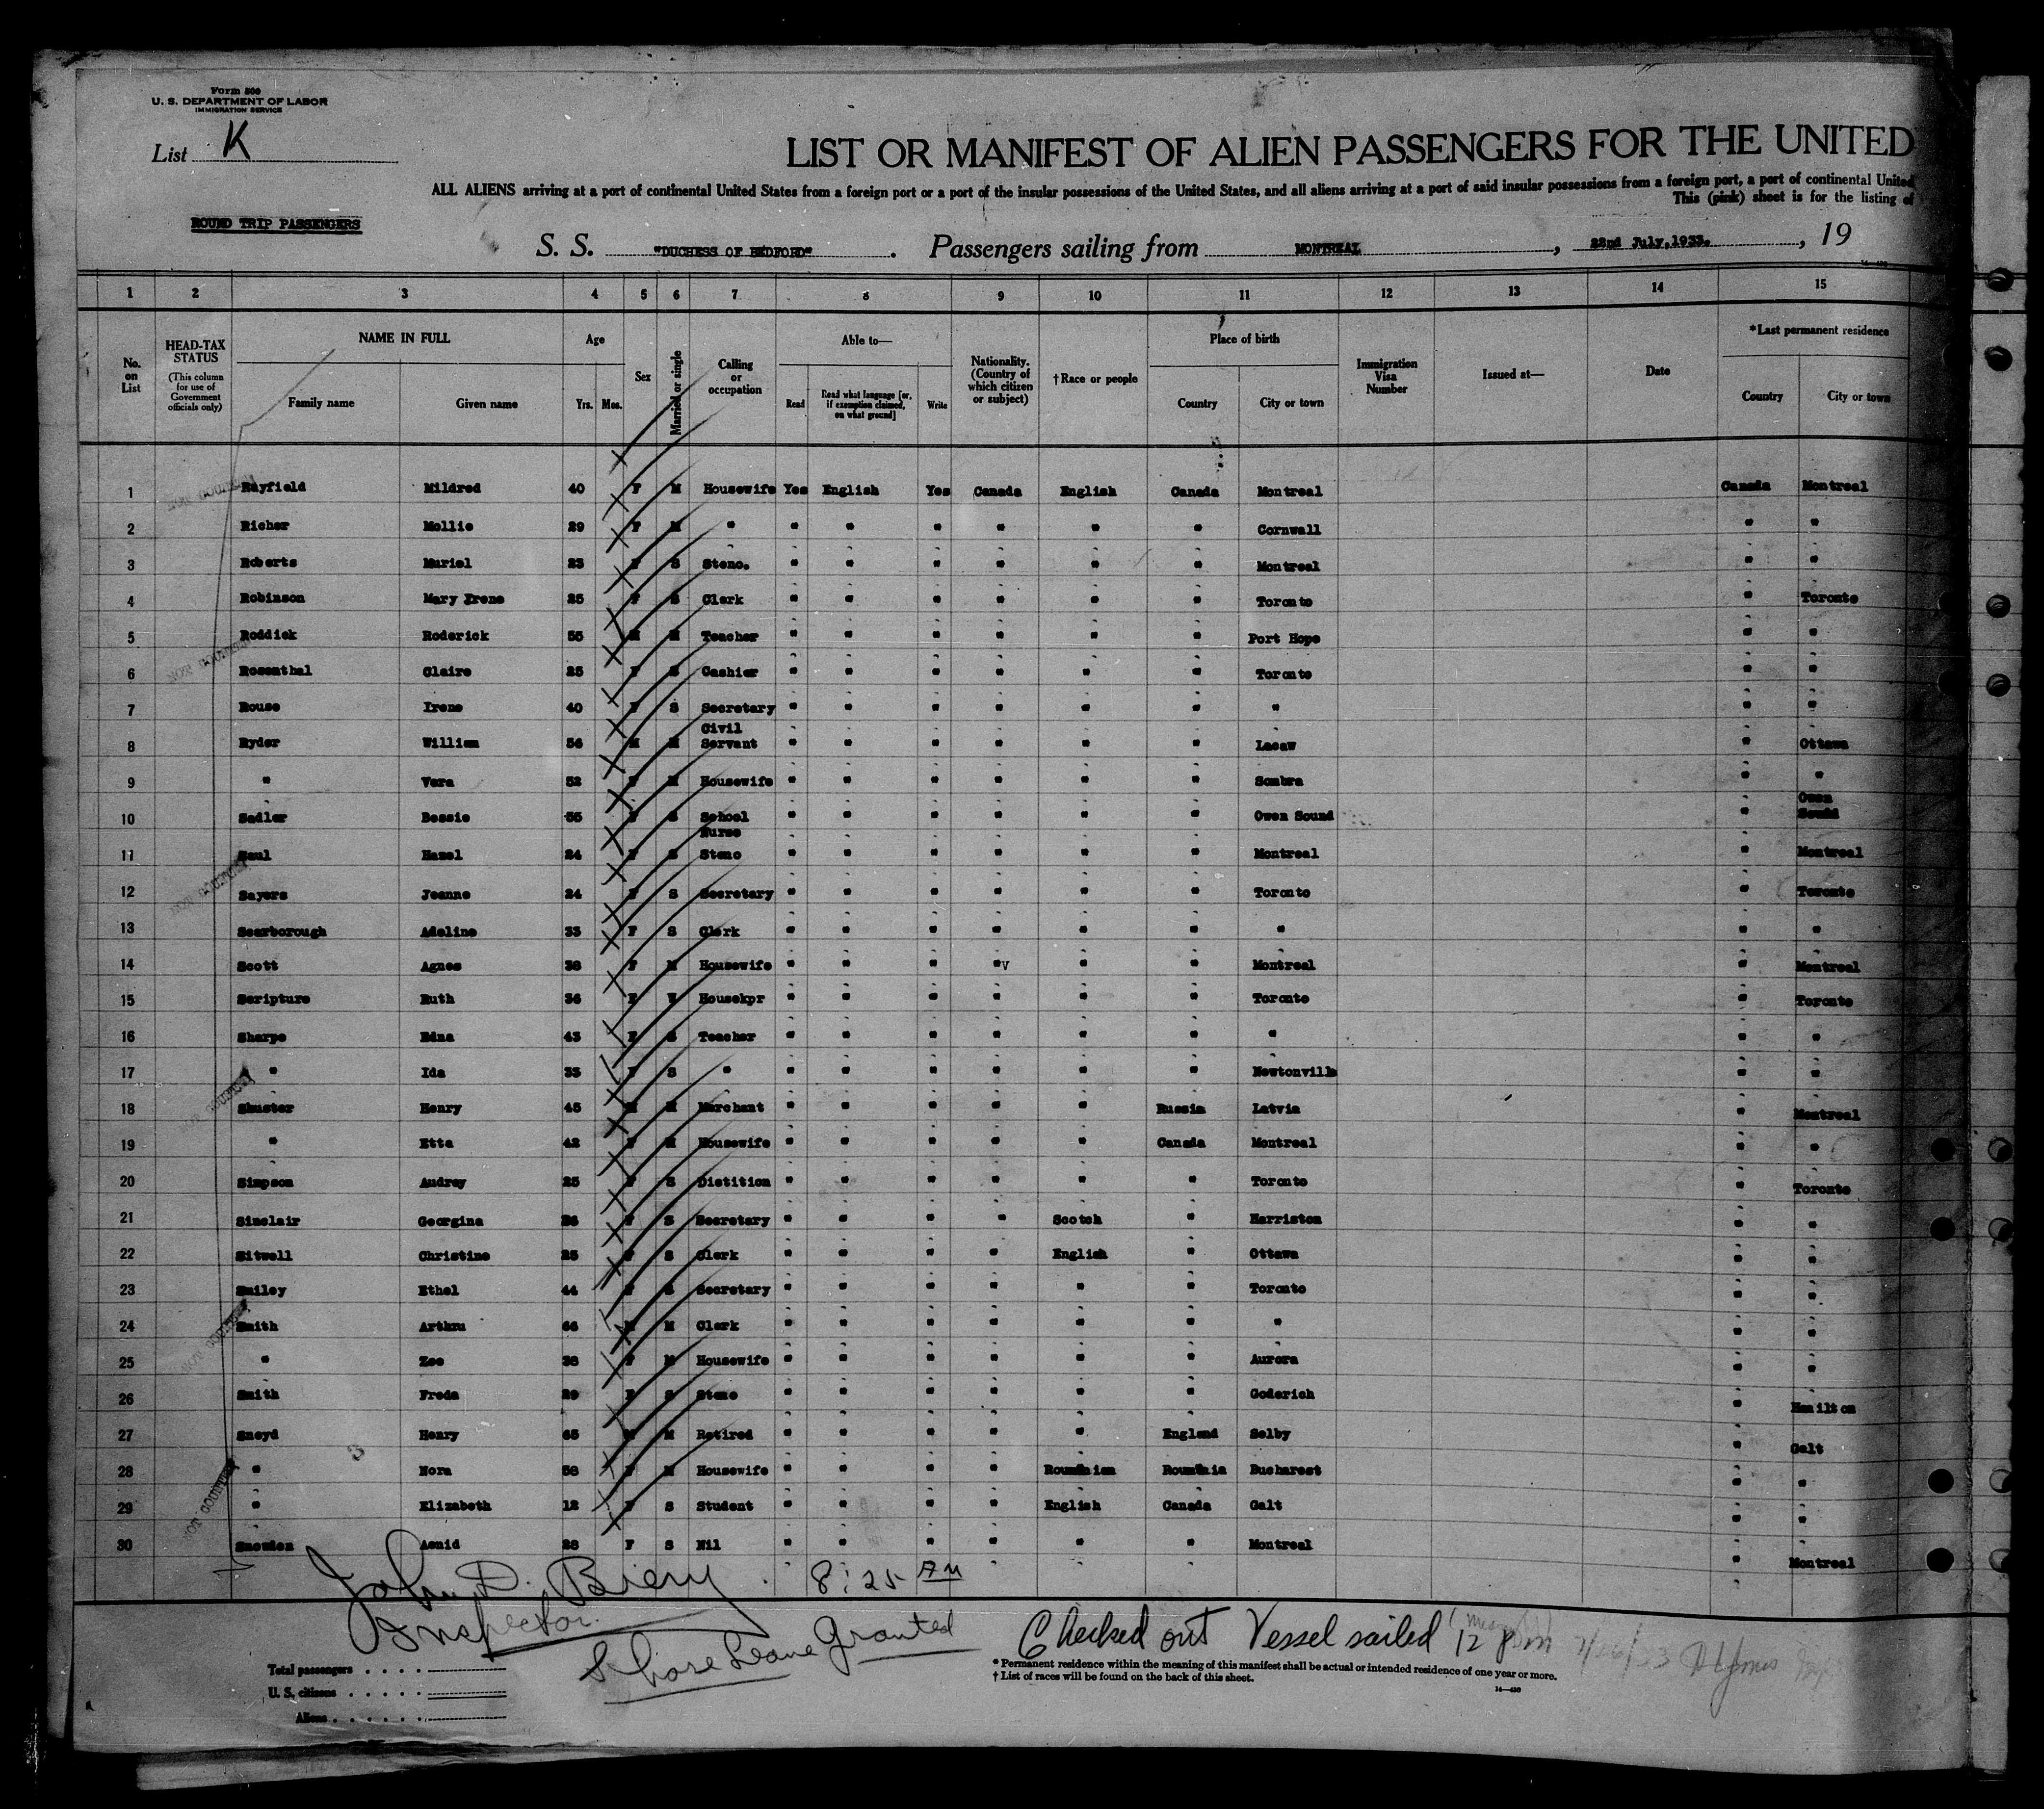 Form 500
U. S. DEPARTMENT OF LABOR
IMMIGRATION SERVICE
List K
LIST OR MANIFEST OF ALIEN PASSENGERS FOR THE UNITED
ALL ALIENS arriving at a port of continental United States from a foreign port or a port of the insular possessions of the United States, and all aliens arriving at a port of said insular possessions from a foreign port, a port of continental United
This (pink) sheet is for the listing of
ROUND TRIP PASSENGERS
S. S. "DUCHESS OF BEDFORD". Passengers sailing from MONTREAL, 22nd July, 1933., 19
1 2 3 4 5 6 7 8 9 10 11 12 13 14 15
No. on List
HEAD-TAX STATUS (This column for use of Government officials only)
NAME IN FULL
Family name Given name
Age
Yrs. Mos.
Sex
Married or single
Calling or occupation
Able to—
Read
Read what language [or, if exemption claimed, on what ground]
Write
Nationality. (Country of which citizen or subject)
†Race or people
Place of birth
Country City or town
Immigration Visa Number
Issued at—
Date
*Last permanent residence
Country City or town
1 Rayfield Mildred 40 F M Housewife Yes English Yes Canada English Canada Montreal Canada Montreal
2 Richer Mollie 29 F M " " " " " " " Cornwall " "
3 Roberts Muriel 23 F S Steno. " " " " " " Montreal " "
4 Robinson Mary Irene 25 F S Clerk " " " " " " Toronto " Toronto
5 Roddick Roderick 55 M M Teacher " " " " " " Port Hope " "
6 Rosenthal Claire 25 F S Cashier " " " " " " Toronto " "
7 Rouse Irene 40 F S Secretary " " " " " " " " "
8 Ryder William 56 M M Civil Servant " " " " " " Lasaw " Ottawa
9 " Vera 52 F M Housewife " " " " " " Sombra " "
10 Sadler Bessie 55 F S School Nurse " " " " " " Owen Sound " Owen Sound
11 Saul Hazel 24 F S Steno " " " " " " Montreal " Montreal
12 Sayers Jeanne 24 F S Secretary " " " " " " Toronto " Toronto
13 Scarborough Adeline 33 F S Clerk " " " " " " " " "
14 Scott Agnes 38 F M Housewife " " " "v " " Montreal " Montreal
15 Scripture Ruth 36 F W Housekpr " " " " " " Toronto " Toronto
16 Sharpe Edna 43 F S Teacher " " " " " " " " "
17 " Ida 33 F S " " " " " " " Newtonville " "
18 Shuster Henry 45 M M Merchant " " " " " Russia Latvia " Montreal
19 " Etta 42 F M Housewife " " " " " Canada Montreal " "
20 Simpson Audrey 25 F S Dietition " " " " " " Toronto " Toronto
21 Sinclair Georgina 26 F S Secretary " " " " Scotch " Harriston " "
22 Sitwell Christine 25 F S Clerk " " " " English " Ottawa " "
23 Smiley Ethel 44 F S Secretary " " " " " " Toronto " "
24 Smith Arthru 66 M M Clerk " " " " " " " " "
25 " Zoe 38 F M Housewife " " " " " " Aurora " "
26 Smith Freda 29 F S Steno " " " " " " Goderich " Hamilton
27 Sneyd Henry 65 M M Retired " " " " " England Selby " Galt
28 " Nora 58 F M Housewife " " " " Roumanian Roumania Bucharest " "
29 " Elizabeth 12 F S Student " " " " English Canada Galt " "
30 Snowdon Aenid 28 F S Nil " " " " " " Montreal " Montreal
NOT COUNTED
NOT COUNTED
NOT COUNTED
NOT COUNTED
NOT COUNTED
NOT COUNTED
John D. Biery 8:25 AM
Inspector.
Shore Leave Granted
Checked out Vessel sailed 12 pm
Total passengers
U. S. citizens
Aliens
* Permanent residence within the meaning of this manifest shall be actual or intended residence of one year or more.
† List of races will be found on the back of this sheet.
14—430